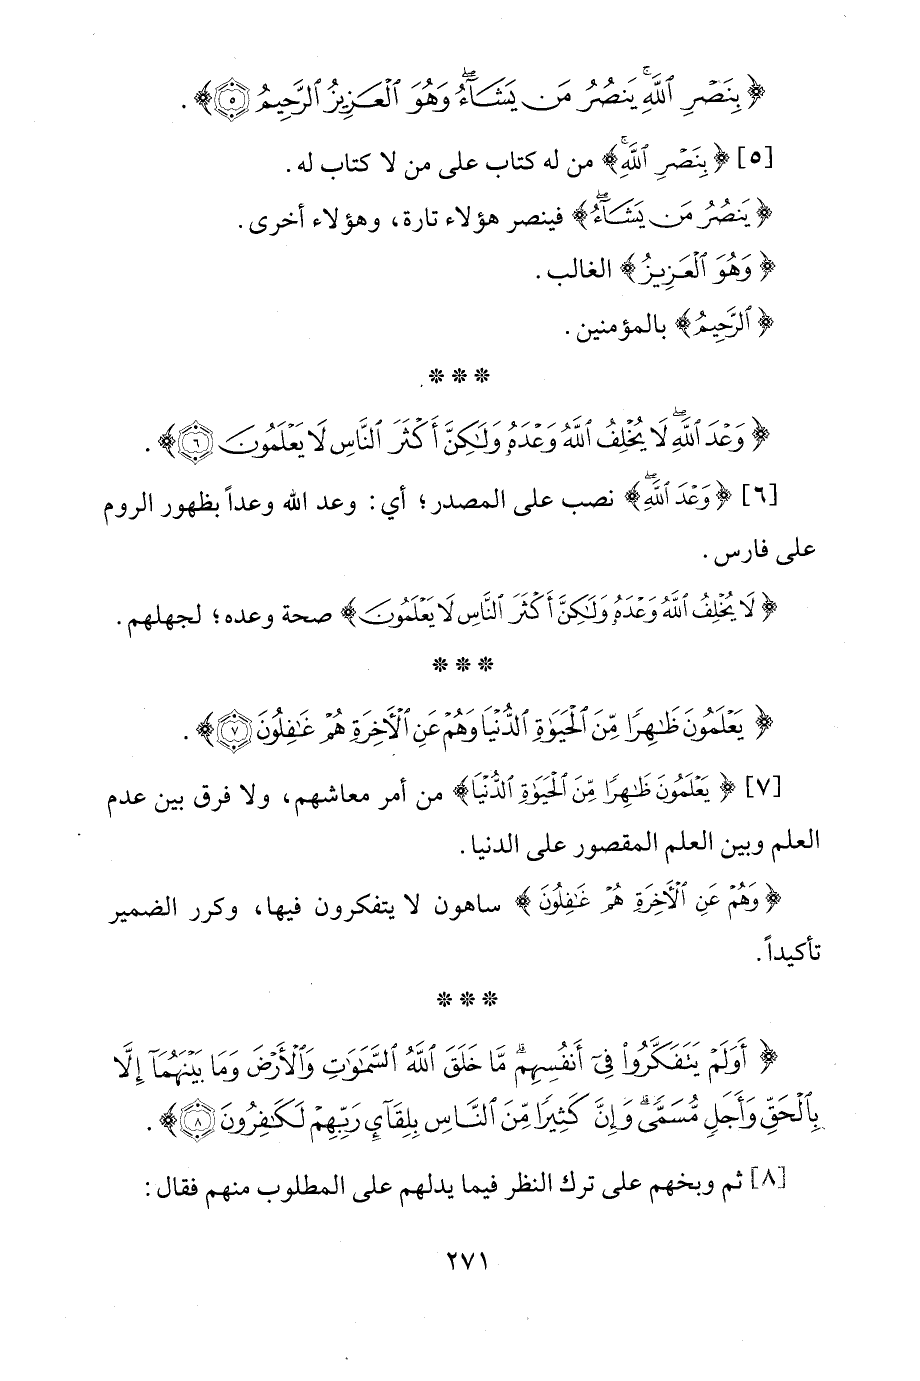 ﴿ بِنَصْرِ ٱللَّهِۚ يَنصُرُ مَن يَشَآءُۖ وَهُوَ ٱلْعَزِيزُ ٱلرَّحِيمُ ٥ ﴾ .
[٥] ﴿ بِنَصْرِ ٱللَّهِۚ ﴾ من له كتاب على من لا كتاب له .
﴿ يَنصُرُ مَن يَشَآءُۖ ﴾ فينصر هؤلاء تارة، وهؤلاء أخرى .
﴿ وَهُوَ ٱلْعَزِيزُ ﴾ الغالب .
﴿ ٱلرَّحِيمُ ﴾ بالمؤمنين .
* * *
﴿ وَعْدَ ٱللَّهِۖ لَا يُخْلِفُ ٱللَّهُ وَعْدَهُۥ وَلَٰكِنَّ أَكْثَرَ ٱلنَّاسِ لَا يَعْلَمُونَ ٦ ﴾ .
[٦] ﴿ وَعْدَ ٱللَّهِۖ ﴾ نصب على المصدر؛ أي: وعد الله وعداً بظهور الروم
على فارس .
﴿ لَا يُخْلِفُ ٱللَّهُ وَعْدَهُۥ وَلَٰكِنَّ أَكْثَرَ ٱلنَّاسِ لَا يَعْلَمُونَ ﴾ صحة وعده؛ لجهلهم .
* * *
﴿ يَعْلَمُونَ ظَٰهِرًا مِّنَ ٱلْحَيَوٰةِ ٱلدُّنْيَا وَهُمْ عَنِ ٱلْأَخِرَةِ هُمْ غَٰفِلُونَ ٧ ﴾ .
[٧] ﴿ يَعْلَمُونَ ظَٰهِرًا مِّنَ ٱلْحَيَوٰةِ ٱلدُّنْيَا ﴾ من أمر معاشهم، ولا فرق بين عدم
العلم وبين العلم المقصور على الدنيا .
﴿ وَهُمْ عَنِ ٱلْأَخِرَةِ هُمْ غَٰفِلُونَ ﴾ ساهون لا يتفكرون فيها، وكرر الضمير
تأكيداً .
* * *
﴿ أَوَلَمْ يَتَفَكَّرُوا۟ فِىٓ أَنفُسِهِمۗ مَّا خَلَقَ ٱللَّهُ ٱلسَّمَٰوَٰتِ وَٱلْأَرْضَ وَمَا بَيْنَهُمَآ إِلَّا
بِٱلْحَقِّ وَأَجَلٍ مُّسَمًّىۗ وَإِنَّ كَثِيرًا مِّنَ ٱلنَّاسِ بِلِقَآئِ رَبِّهِمْ لَكَٰفِرُونَ ٨ ﴾ .
[٨] ثم وبخهم على ترك النظر فيما يدلهم على المطلوب منهم فقال :
٢٧١